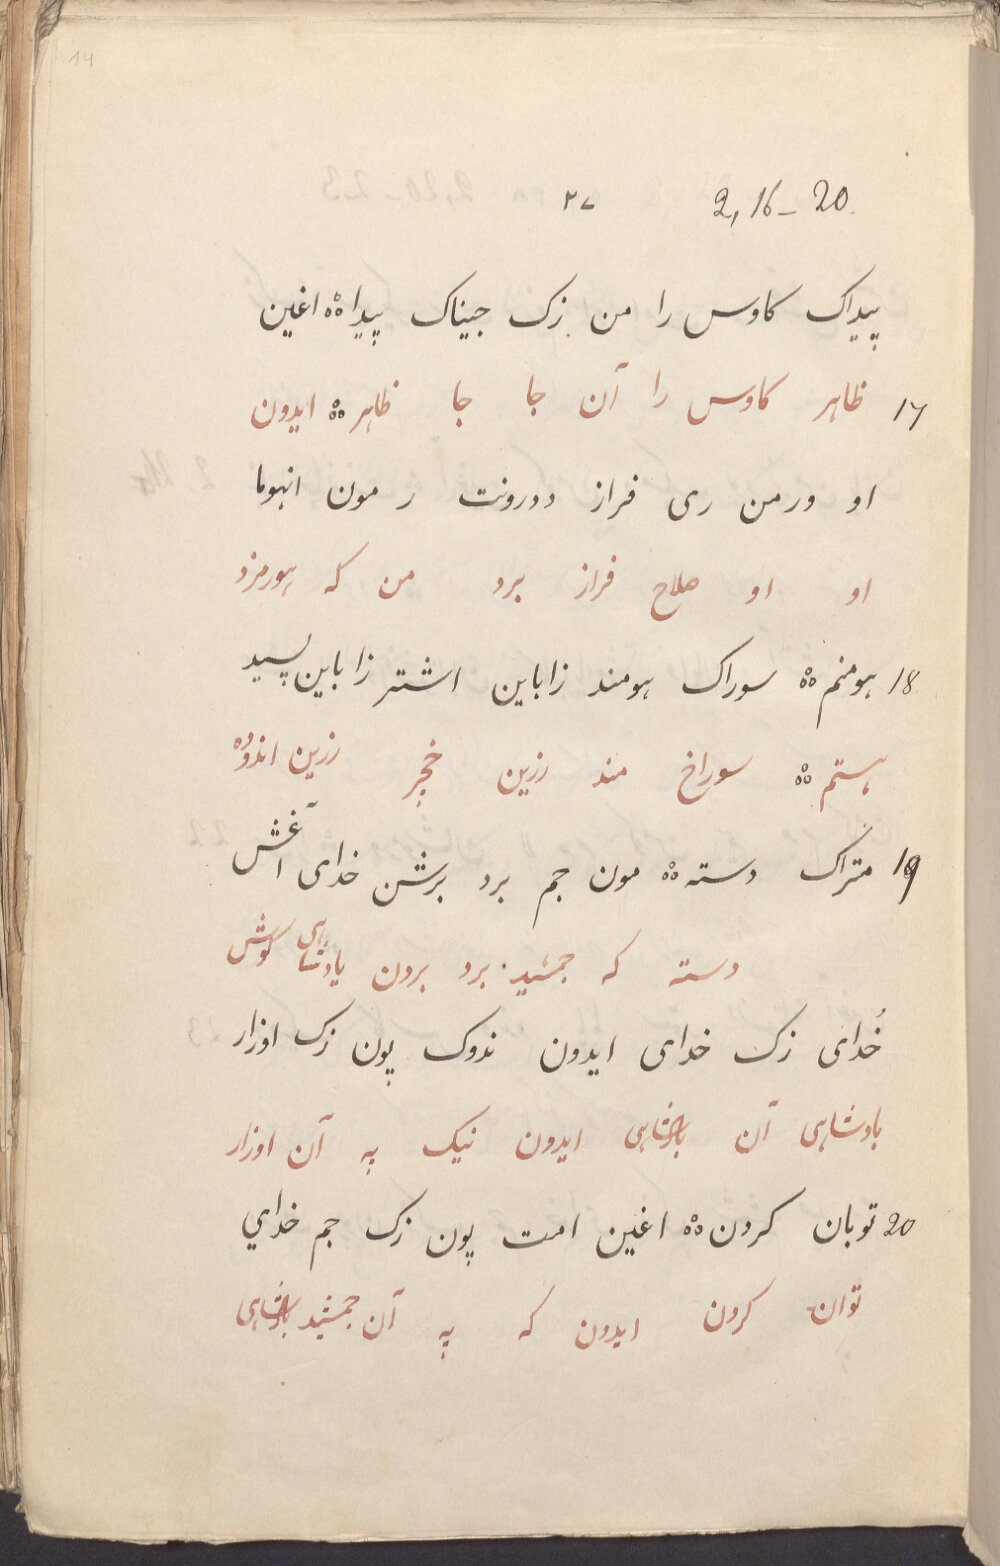 14
2, 16 — 20.
٢٧
پیداک کاوس را من زک جیناک پیدا ٥٥ اغین
17 ظاهر کاوس را آن جا جا ظاهر ٥٥ ایدون
او ورمن ری فراز ددرونت ر مون انهوما
او او صلاح فراز برد من که هورمزد
18 هومنم ٥٥ سوراک هومند زاباین اشتر زاباین پسید
هستم ٥٥ سوراخ مند رزین خجر رزین اندوه
19 متراک دسته ٥٥ مون جم برد برشن خدای آغش
دسته که جمشید برد بردن پادشاهی کوش
خُدای زک خدای ایدون ندوک پون زک اوزار
بادشاهی آن بادشاهی ایدون نیک به آن اوزار
20 توبان کردن ٥٥ اغین امت پون زک جم خداي
توان کردن ایدون که په آن جمشید بادشاهی